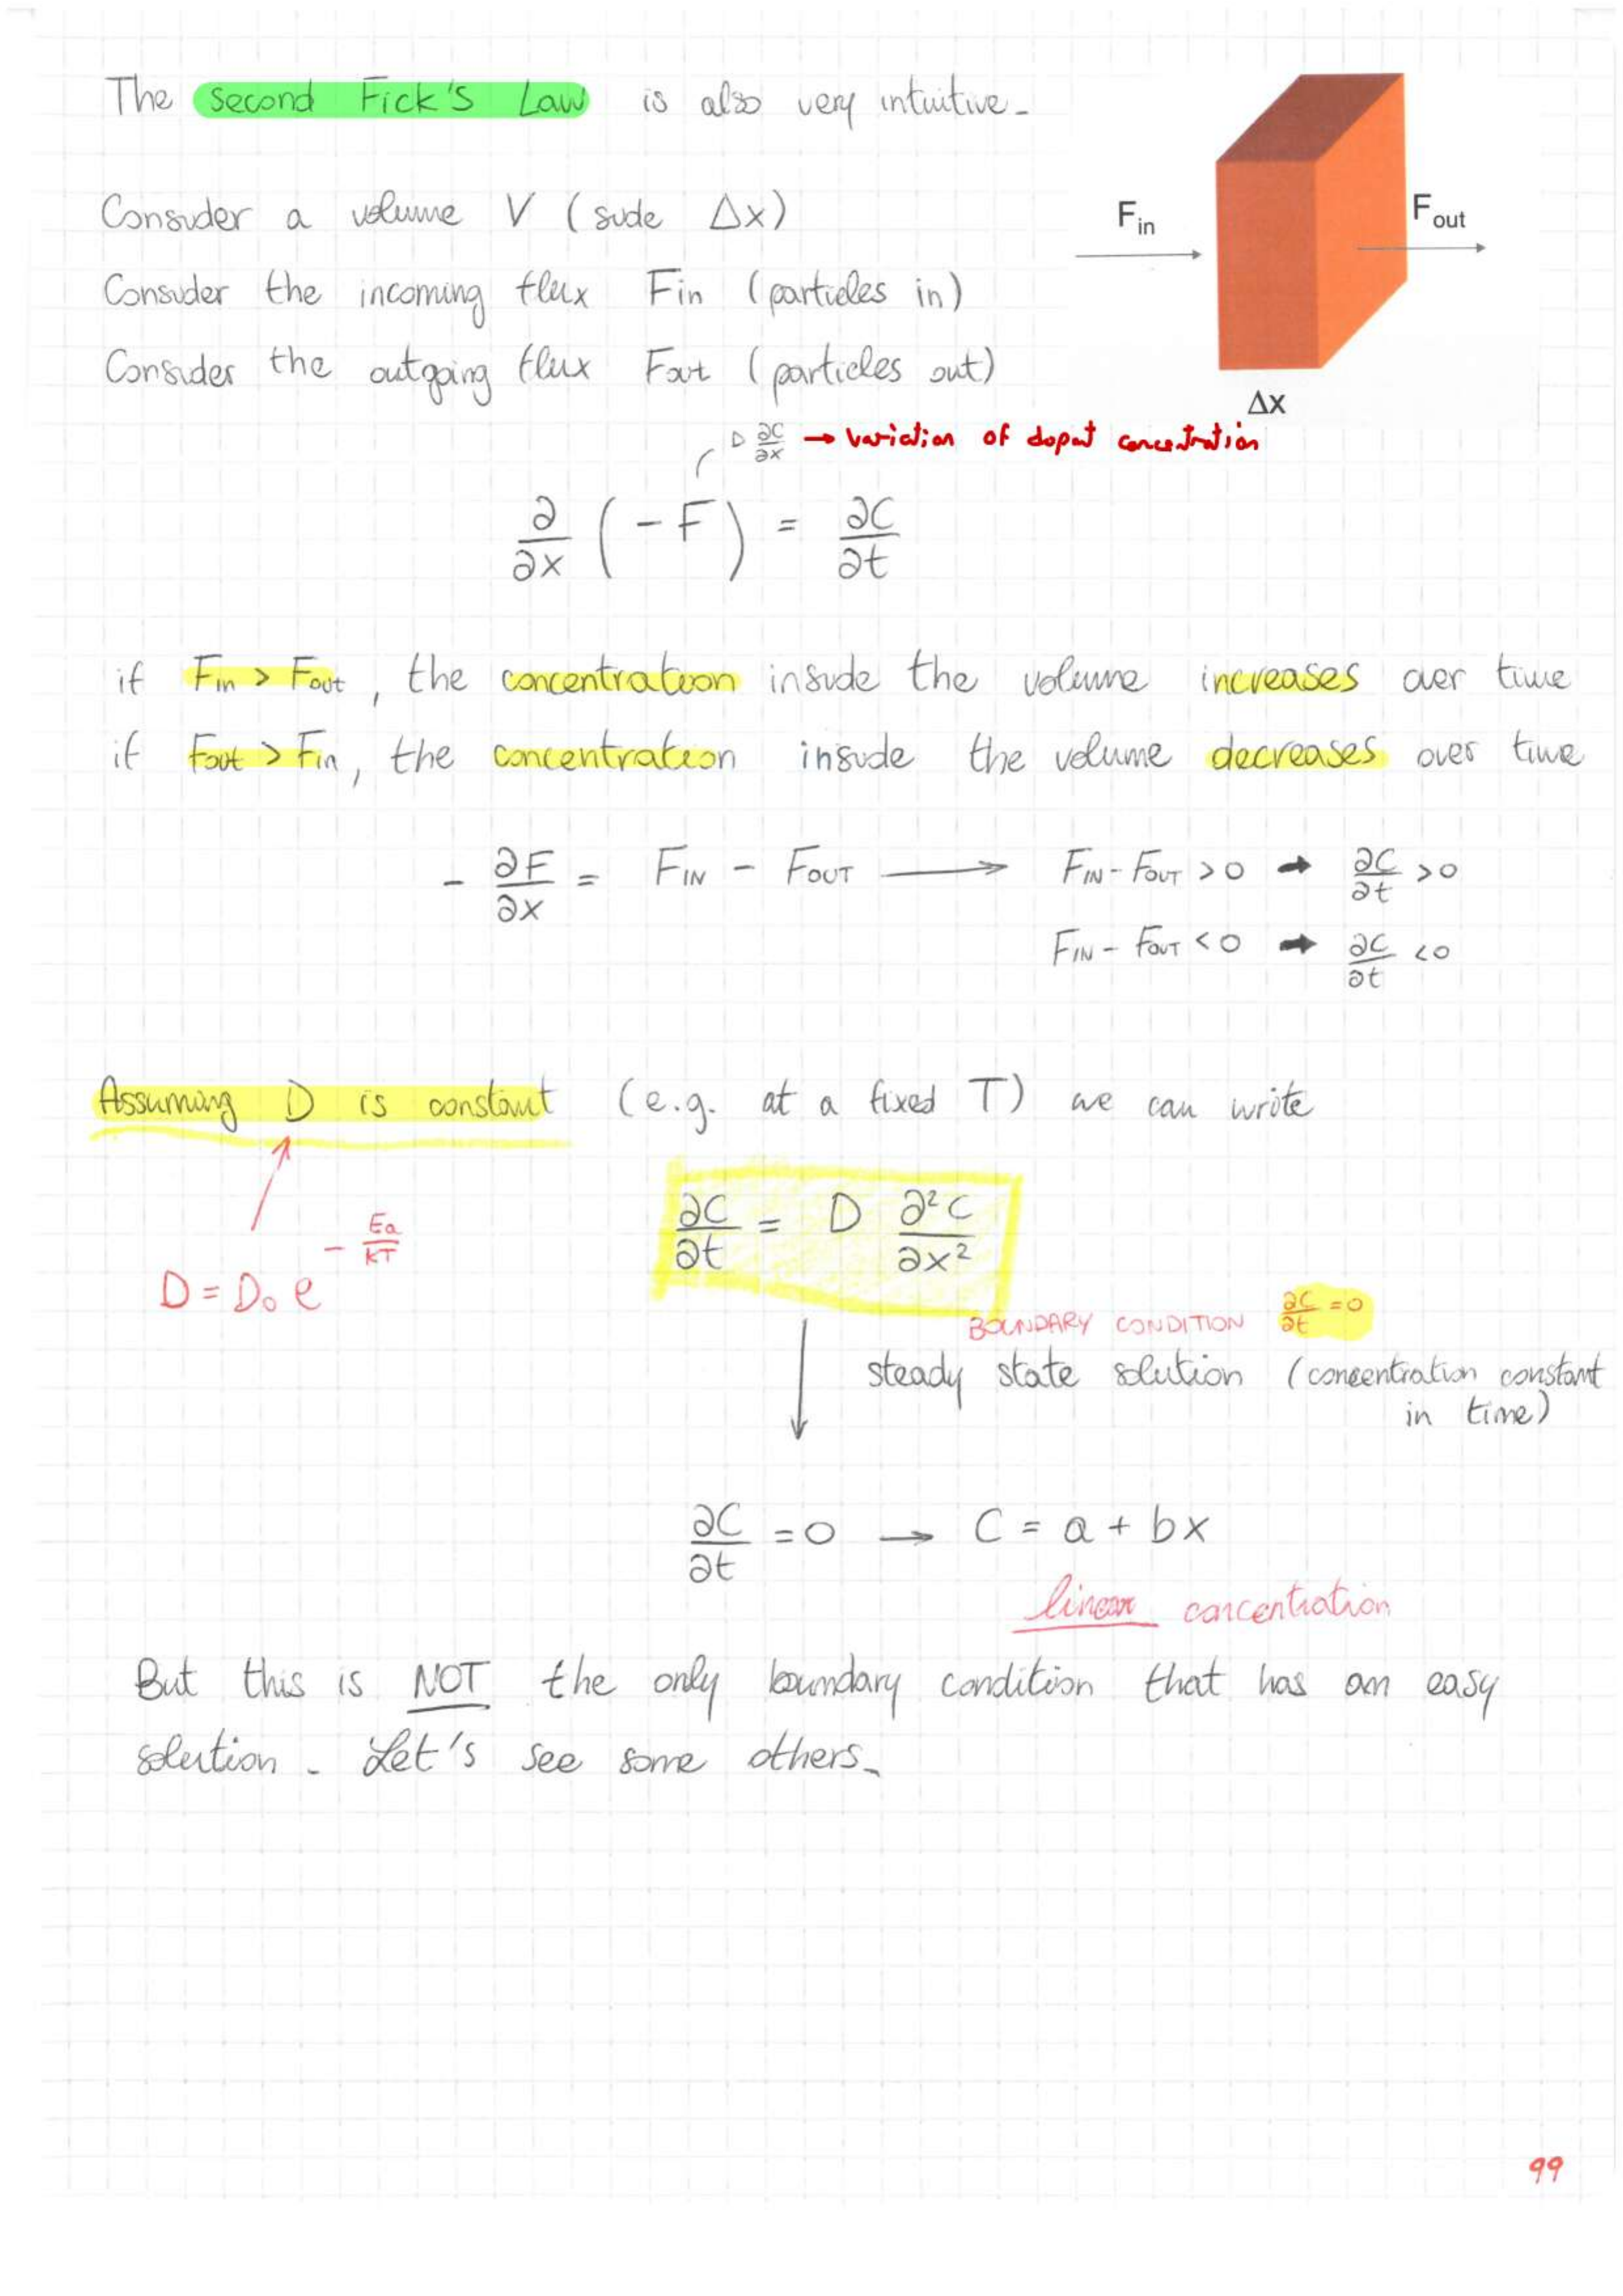 The second Fick's Law is also very intuitive.
Consider a volume V (side Δx)
Consider the incoming flux Fin (particles in)
Consider the outgoing flux Fout (particles out)
F_in
F_out
Δx
D ∂C/∂x → variation of dopat concentration
∂/∂x (-F) = ∂C/∂t
if Fin > Fout, the concentration inside the volume increases over time
if Fout > Fin, the concentration inside the volume decreases over time
- ∂F/∂x = F_IN - F_OUT ⟶ F_IN - F_OUT > 0 → ∂C/∂t > 0
F_IN - F_OUT < 0 → ∂C/∂t < 0
Assuming D is constant (e.g. at a fixed T) we can write
D = D₀ e^(-Ea/kT)
∂C/∂t = D ∂²C/∂x²
BOUNDARY CONDITION ∂C/∂t = 0
steady state solution (concentration constant
in time)
∂C/∂t = 0 → C = a + bx
linear concentration
But this is NOT the only boundary condition that has an easy
solution. Let's see some others.
99